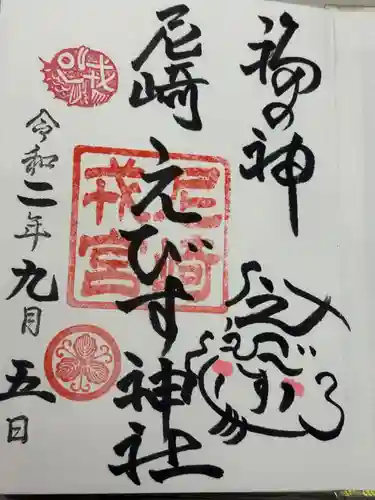 福の神
えびす
尼崎えびす神社
尼崎戎宮
令和二年九月五日